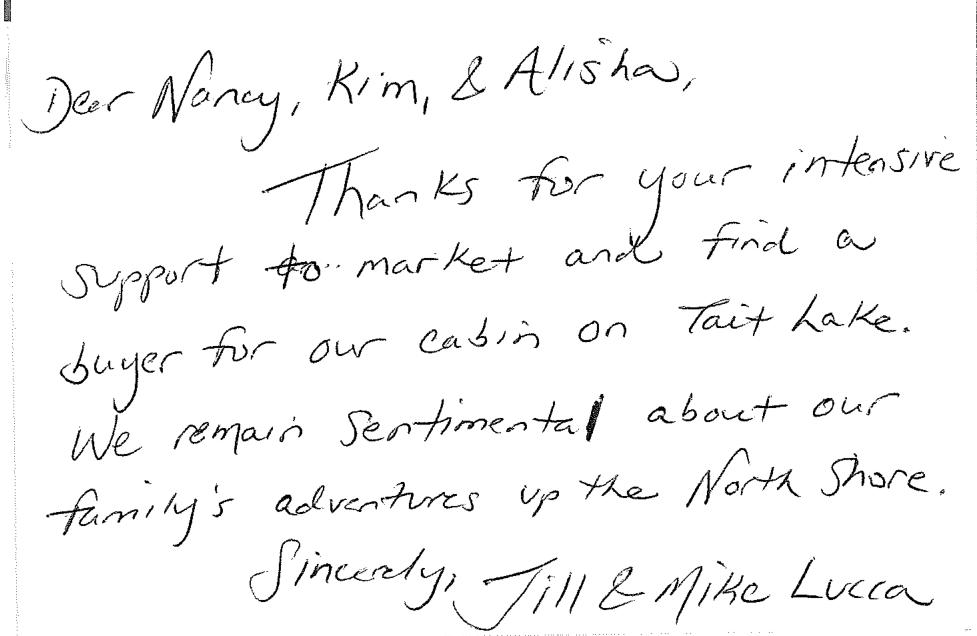 Dear Nancy, Kim, & Alisha,
Thanks for your intensive
support to market and find a
buyer for our cabin on Tait Lake.
We remain sentimental about our
family's adventures up the North Shore.
Sincerely, Jill & Mike Lucca